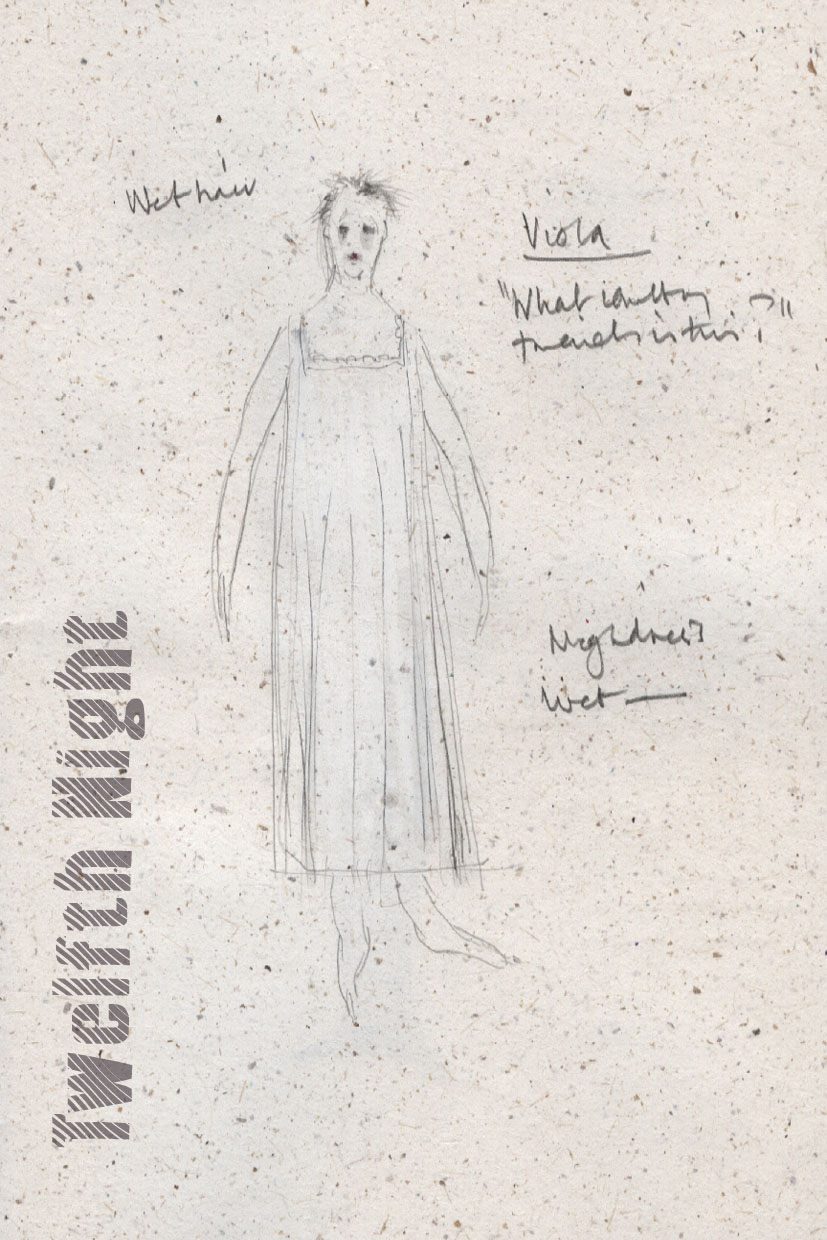 Wet hair
Viola
"What country
friends is this?"
Nightdress
Wet —
Twelfth Night